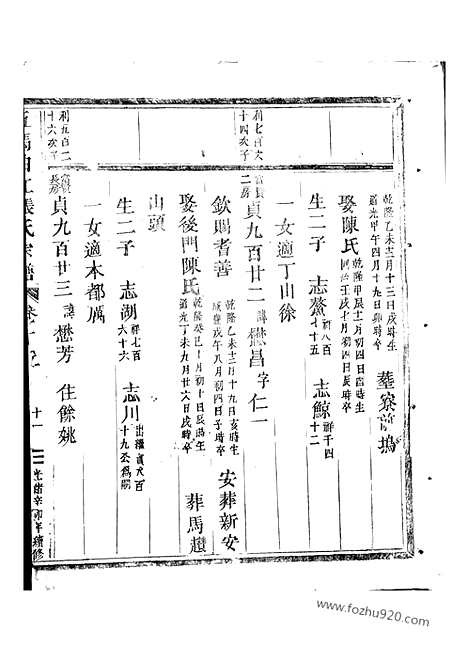 乾隆乙未三月十三日戌時生
道光甲午四月十九日卯時卒
葬寮前塢
娶陳氏
乾隆甲辰十二月初四日酉時生
同治壬戌七月初四日辰時卒
生二子 志鰲 祥八百七十五 志鯨 祥千四十二
一女適丁山徐
利七百六十四次子
貞九百廿二 諱懋昌 字仁一
欽賜耆善
乾隆乙未十二月十九日亥時生
咸豐戊午八月初四日子時卒
安葬新安
娶後門陳氏
乾隆癸巳十月初十日辰時生
道光丁未九月廿六日戌時卒
葬馬趙
山頭
生二子 志湖 祥七百六十六 志川 出繼貞九百十九公為嗣
一女適本都厲
利五百二十六次子
貞九百廿三 諱懋芳 住餘姚
張氏宗譜
十一
光緒辛卯年續修
www.fozhu920.com